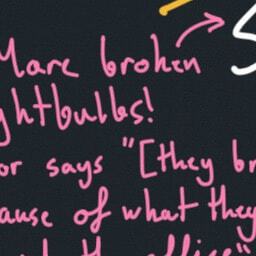 Mare broken
ghtbulbs!
or says "[they br
ause of what they